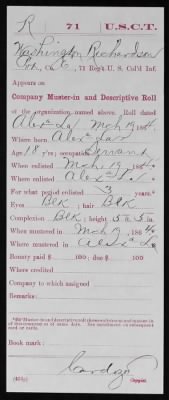 R 71 U.S.C.T.
Washington Richardson
Co. C, 71 Reg't U. S. Col'd Inf.
Appears on
Company Muster-in and Descriptive Roll
of the organization named above. Roll dated
Alexa La Mch 19, 1864
Where born Alexa La
Age 18 y'rs; occupation Servant
When enlisted Mch 19, 1864
Where enlisted Alexa La
For what period enlisted 3 years.*
Eyes Blk; hair Blk
Complexion Blk; height 5 ft. 5 in.
When mustered in Mch 19, 1864
Where mustered in Alexa La
Bounty paid $ 100; due $ 100
Where credited
Company to which assigned
Remarks:
Book mark:
Cardozo
Copyist.